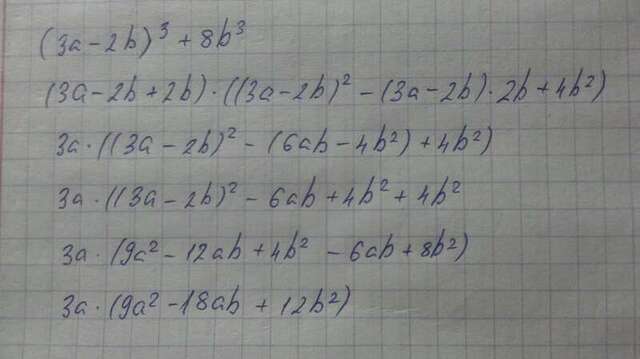 (3a-2b)³ + 8b³
(3a-2b+2b)·((3a-2b)² -(3a-2b)·2b+4b²)
3a·((3a-2b)² -(6ab-4b²)+4b²)
3a·((3a-2b)² -6ab+4b²+4b²
3a·(9a²-12ab+4b² -6ab+8b²)
3a·(9a²-18ab+12b²)